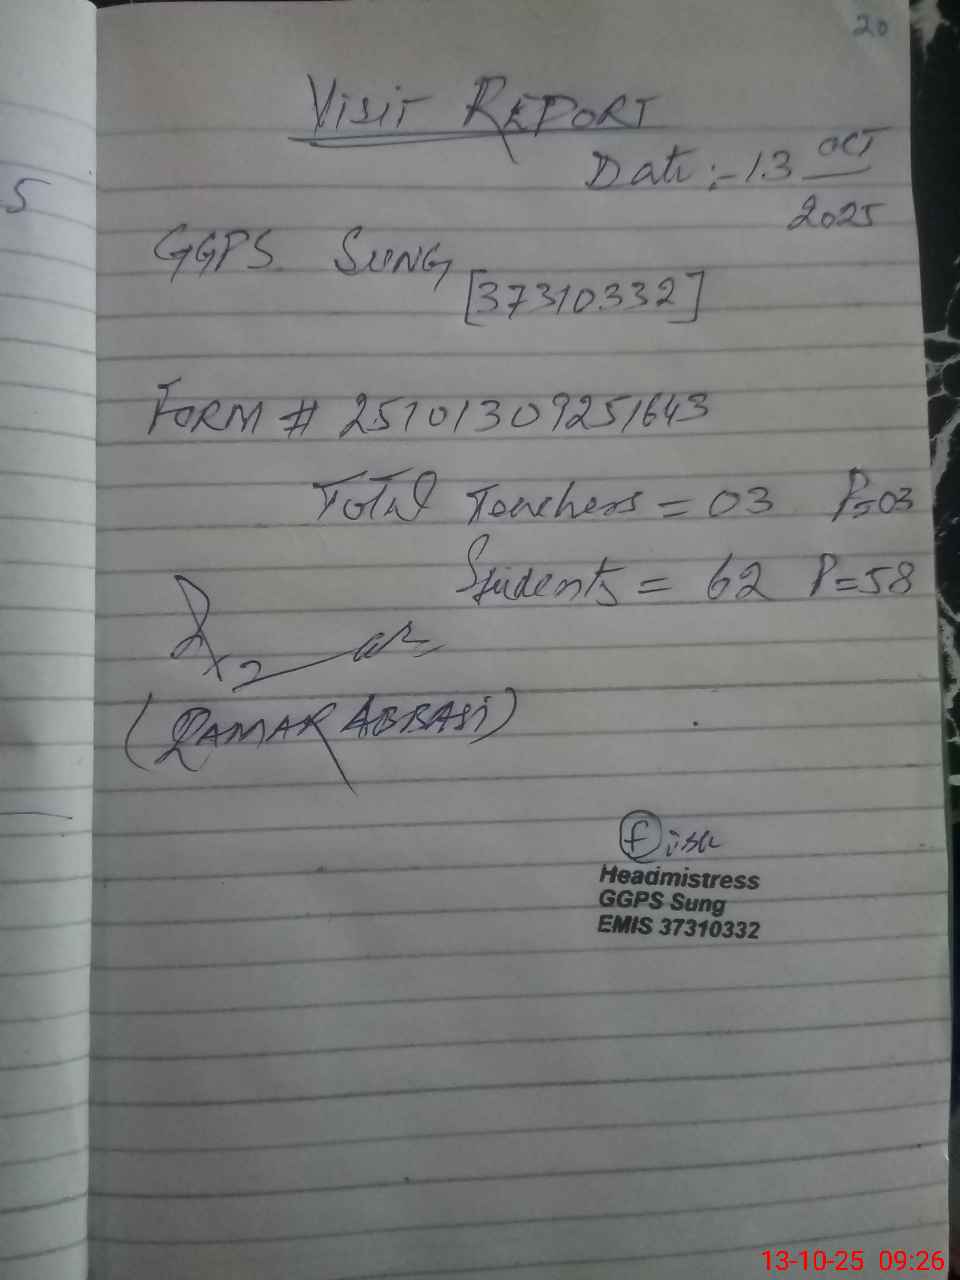 20
VISIT REPORT
Date :- 13 OCT
2025
5
GGPS SUNG
[37310332]
FORM # 25101309251643
Total Teachers = 03 P=03
Students = 62 P=58
(QAMAR ABBASI)
Headmistress
GGPS Sung
EMIS 37310332
13-10-25 09:26